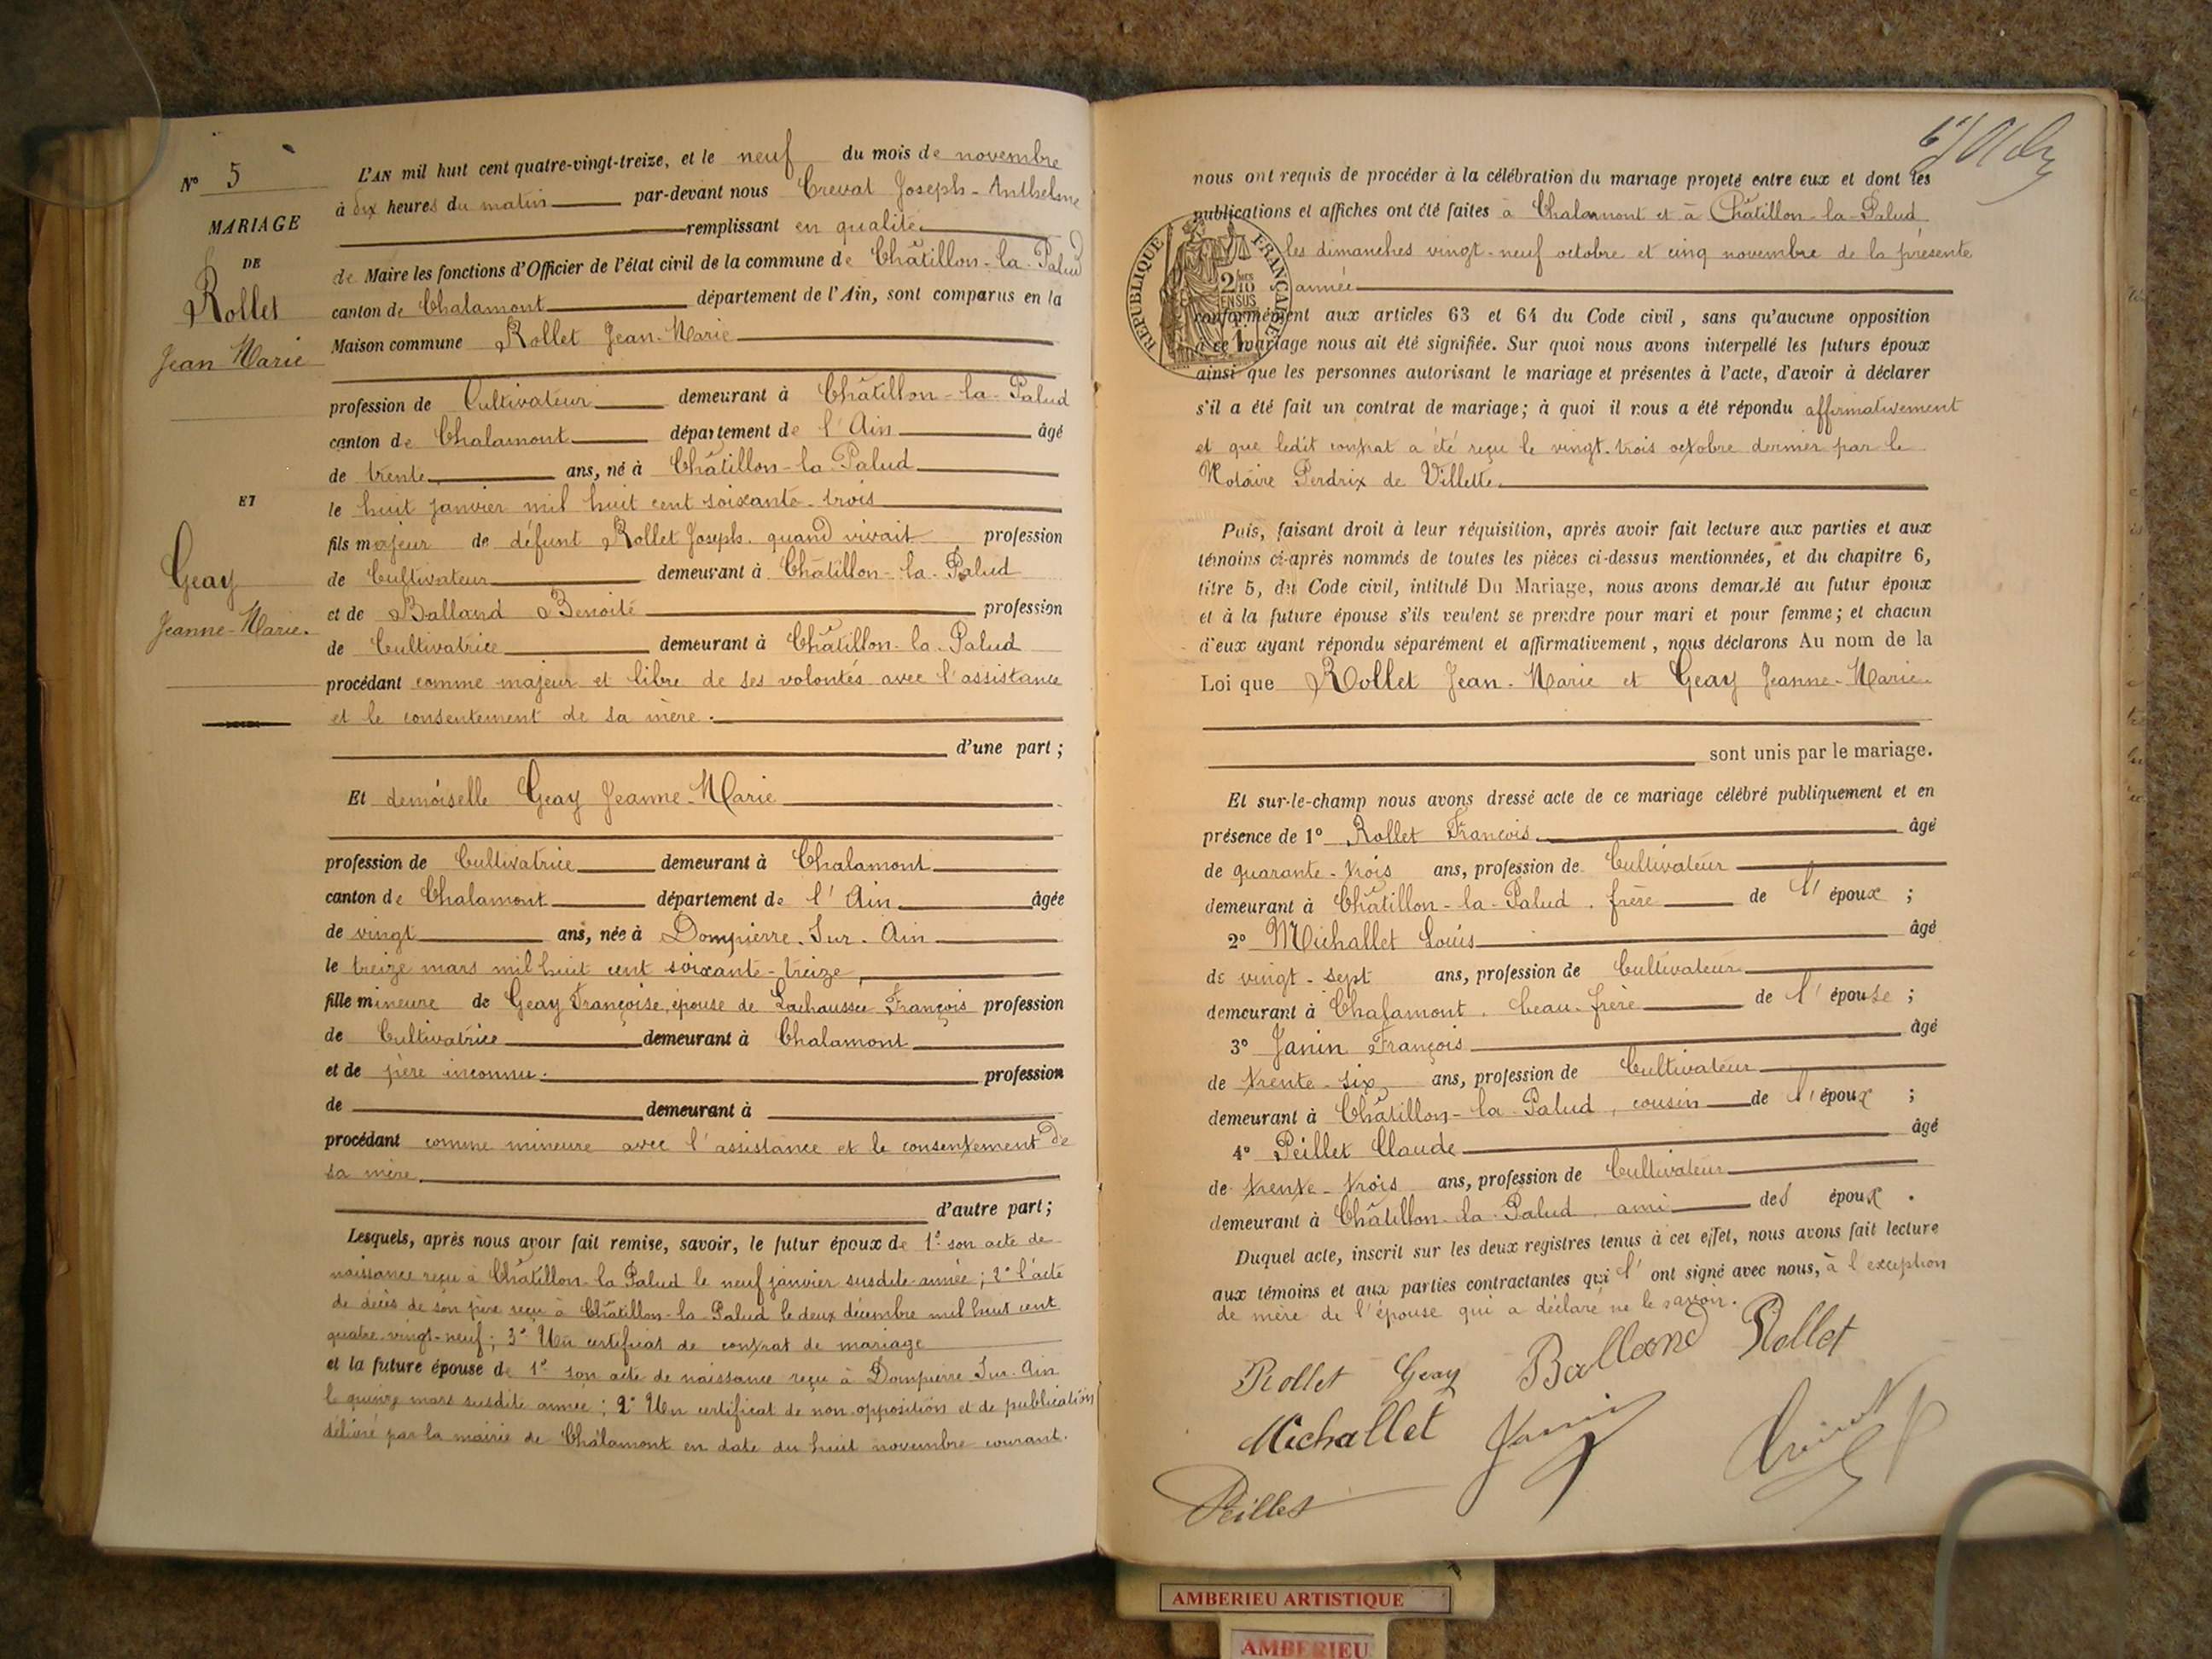 N° 5
MARIAGE
DE
Rollet
Jean Marie
ET
Geay
Jeanne-Marie.
L'AN mil huit cent quatre-vingt-treize, et le neuf du mois de novembre
à dix heures du matin par-devant nous Crevat Joseph-Anthelme
remplissant en qualité
de Maire les fonctions d'Officier de l'état civil de la commune de Châtillon-la-Palud
canton de Chalamont département de l'Ain, sont comparus en la
Maison commune Rollet Jean-Marie
profession de Cultivateur demeurant à Châtillon-la-Palud
canton de Chalamont département de l'Ain âgé
de trente ans, né à Châtillon-la-Palud
le huit janvier mil huit cent soixante-trois
fils majeur de défunt Rollet Joseph quand vivait profession
de Cultivateur demeurant à Châtillon-la-Palud
et de Balland Benoite profession
de Cultivatrice demeurant à Châtillon-la-Palud
procédant comme majeur et libre de ses volontés avec l'assistance
et le consentement de sa mère.
d'une part ;
Et demoiselle Geay Jeanne-Marie
profession de Cultivatrice demeurant à Chalamont
canton de Chalamont département de l'Ain âgée
de vingt ans, née à Dompierre-Sur-Ain
le treize mars mil huit cent soixante-treize,
fille mineure de Geay Françoise, épouse de Lachaussée François profession
de Cultivatrice demeurant à Chalamont
et de père inconnu. profession
de demeurant à
procédant comme mineure avec l'assistance et le consentement de
sa mère.
d'autre part ;
Lesquels, après nous avoir fait remise, savoir, le futur époux de 1° son acte de
naissance reçu à Châtillon-la-Palud le neuf janvier susdite année ; 2° l'acte
de décès de son père reçu à Châtillon-la-Palud le deux décembre mil huit cent
quatre-vingt-neuf ; 3° Un certificat de contrat de mariage
et la future épouse de 1° son acte de naissance reçu à Dompierre-Sur-Ain
le quinze mars susdite année ; 2° Un certificat de non opposition et de publication
délivré par la mairie de Châlamont en date du huit novembre courant.
nous ont requis de procéder à la célébration du mariage projeté entre eux et dont les
publications et affiches ont été faites à Chalamont et à Châtillon-la-Palud
les dimanches vingt-neuf octobre et cinq novembre de la présente
année
conformément aux articles 63 et 64 du Code civil, sans qu'aucune opposition
à ce mariage nous ait été signifiée. Sur quoi nous avons interpellé les futurs époux
ainsi que les personnes autorisant le mariage et présentes à l'acte, d'avoir à déclarer
s'il a été fait un contrat de mariage ; à quoi il nous a été répondu affirmativement
et que ledit contrat a été reçu le vingt-trois octobre dernier par le
Notaire Perdrix de Villette.
RÉPUBLIQUE FRANÇAISE
2/10 EN SUS
Puis, faisant droit à leur réquisition, après avoir fait lecture aux parties et aux
témoins ci-après nommés de toutes les pièces ci-dessus mentionnées, et du chapitre 6,
titre 5, du Code civil, intitulé Du Mariage, nous avons demandé au futur époux
et à la future épouse s'ils veulent se prendre pour mari et pour femme ; et chacun
d'eux ayant répondu séparément et affirmativement, nous déclarons Au nom de la
Loi que Rollet Jean-Marie et Geay Jeanne-Marie
sont unis par le mariage.
Et sur-le-champ nous avons dressé acte de ce mariage célébré publiquement et en
présence de 1° Rollet François âgé
de quarante-trois ans, profession de Cultivateur
demeurant à Châtillon-la-Palud, frère de l'époux ;
2° Michallet Louis âgé
de vingt-sept ans, profession de Cultivateur
demeurant à Chalamont, beau-frère de l'épouse ;
3° Janin François âgé
de trente-six ans, profession de Cultivateur
demeurant à Châtillon-la-Palud, cousin de l'époux ;
4° Peillet Claude âgé
de trente-trois ans, profession de Cultivateur
demeurant à Châtillon-la-Palud, ami des époux.
Duquel acte, inscrit sur les deux registres tenus à cet effet, nous avons fait lecture
aux témoins et aux parties contractantes qui l'ont signé avec nous, à l'exception
de mère de l'épouse qui a déclaré ne le savoir.
Rollet Geay Balland Rollet
Michallet Janin
Peillet
AMBERIEU ARTISTIQUE
AMBERIEU